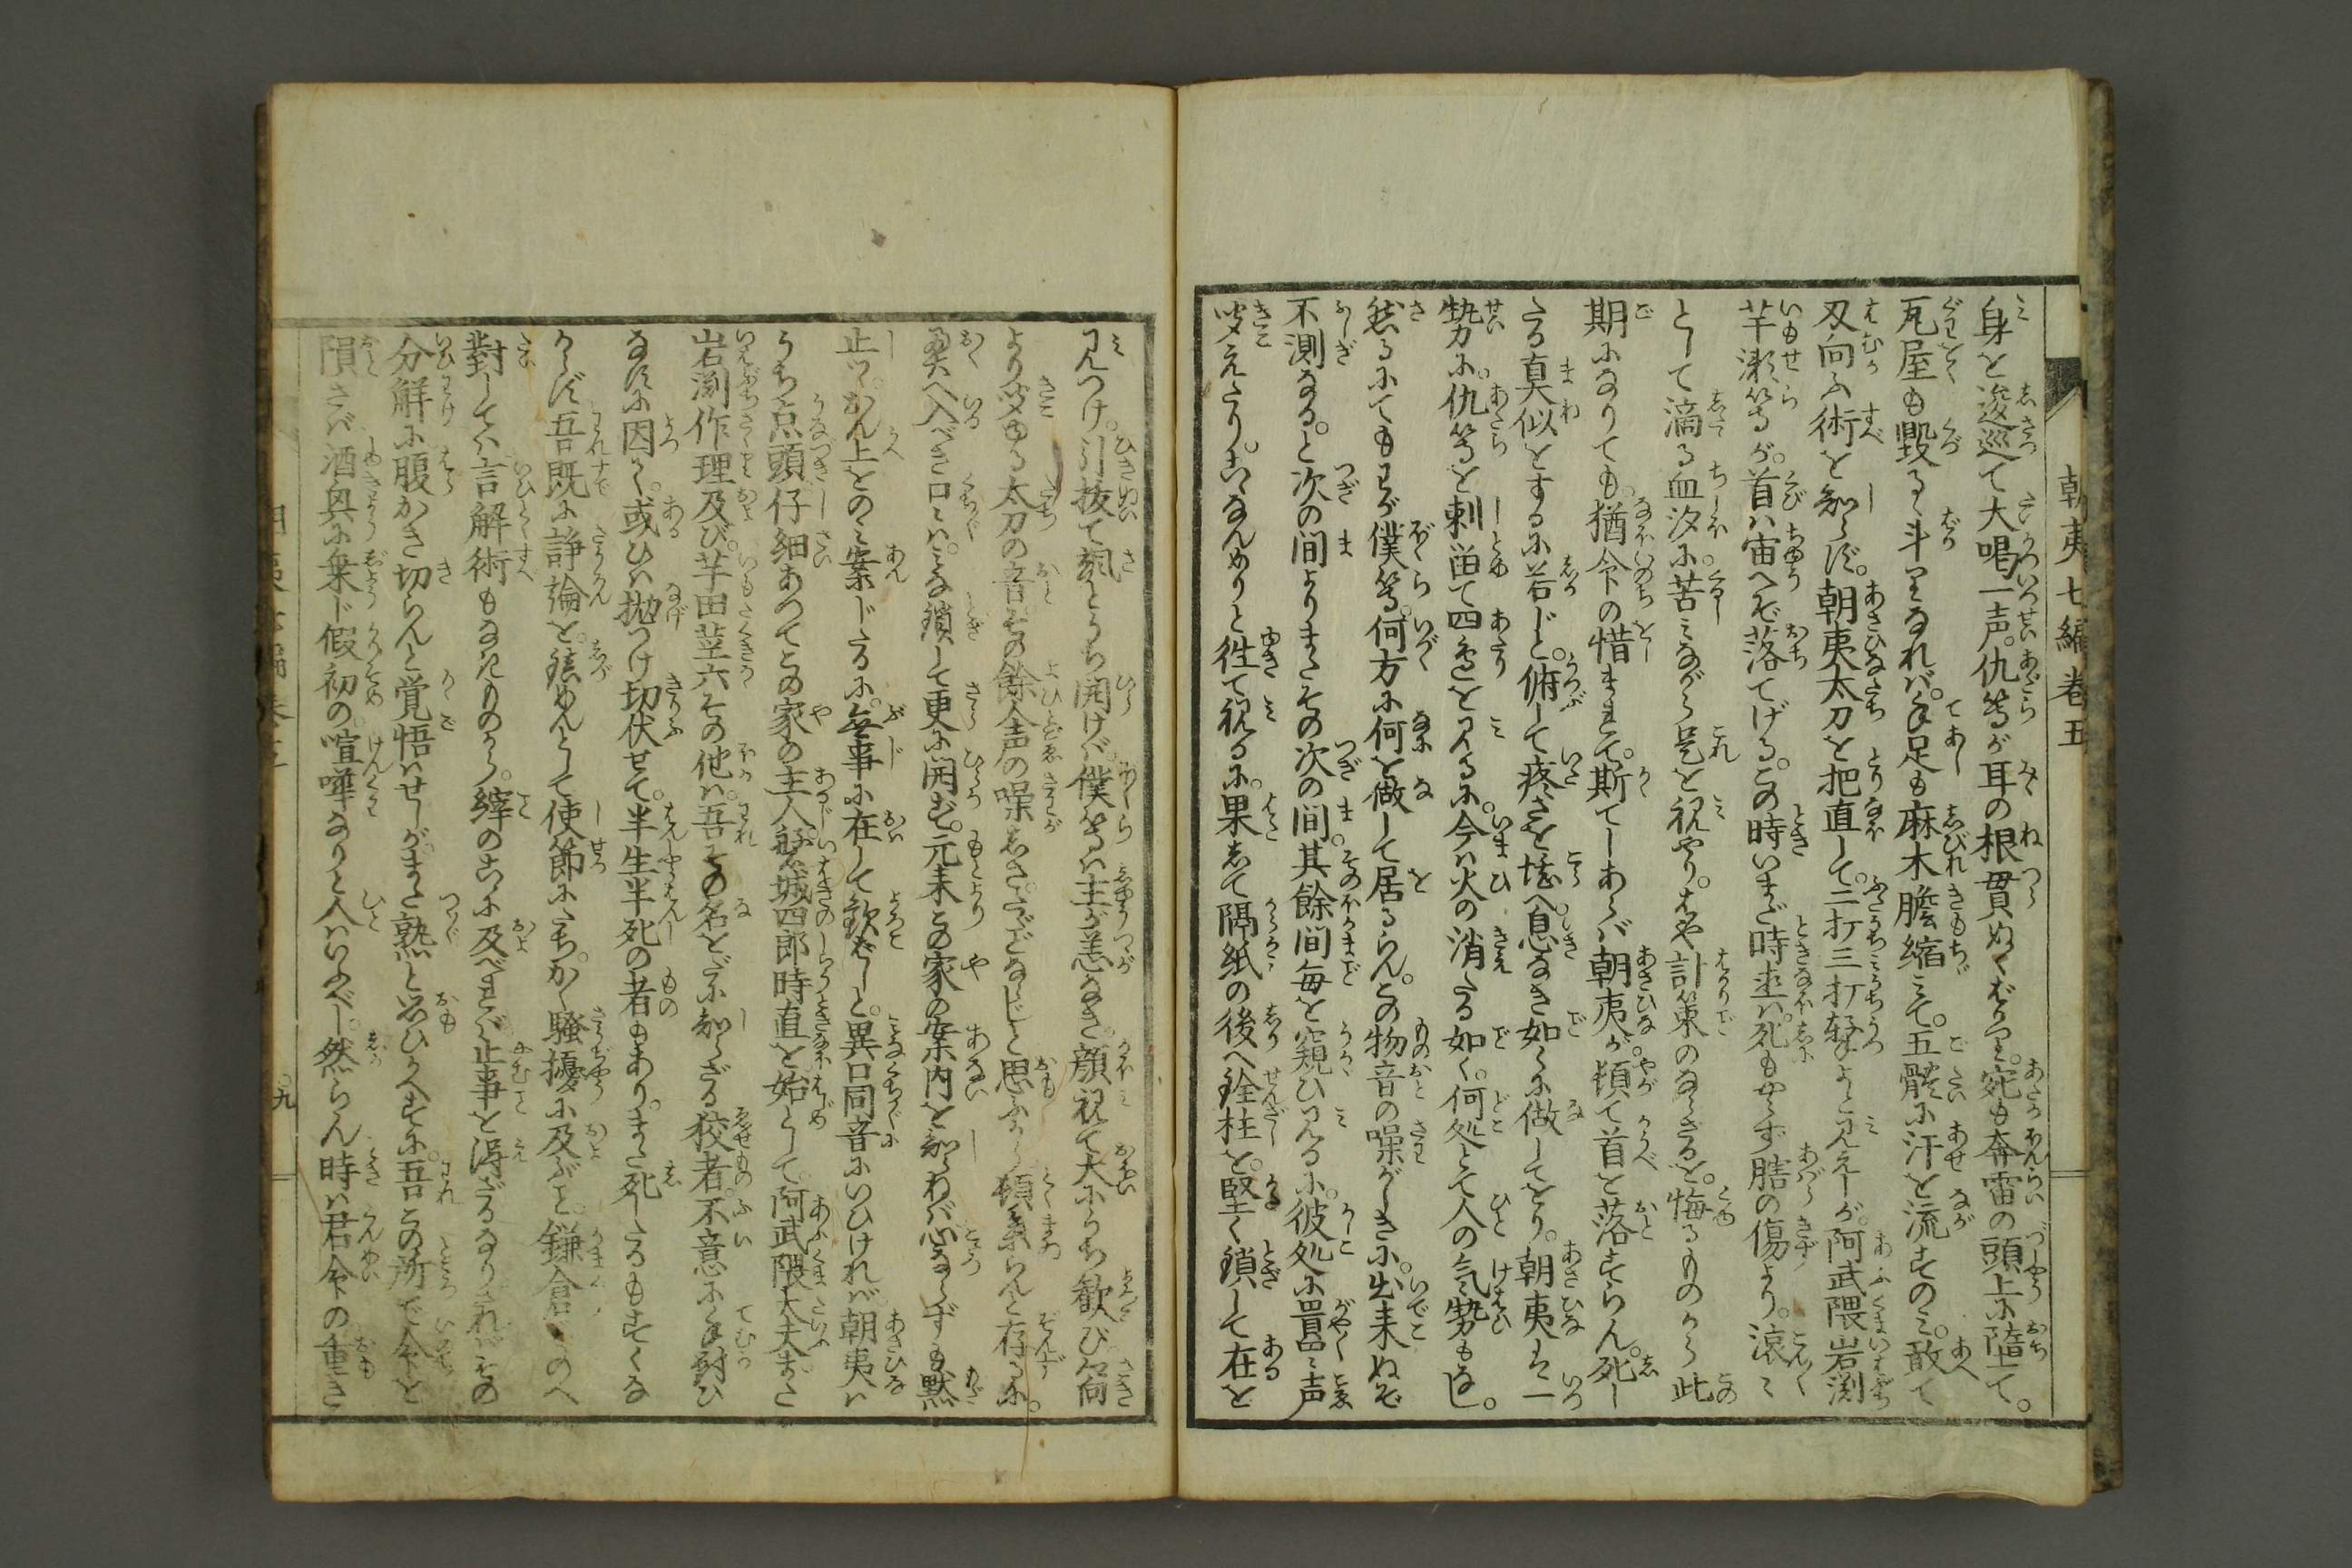 朝夷七編巻五
身を逡巡て大喝一声。仇等が耳の根貫ぬくばかり。宛も奔雷の頭上に墮て。
瓦屋も毀るゝ斗りなれば。手足も麻木膽縮みて。五髒に汗を流すのみ。敢て
刄向ふ術を知らず。朝夷太刀を把直して。二打三打撃よと見えしが。阿武隈岩渕
芋瀬等が。首は宙へぞ落てげる。この時いまだ時直は。死もやらず膳の傷より。滾々
として滴る血汐に。苦しみながら是を視やり。はや計策のならざるを。悔るものから此
期になりても。猶命の惜まれて。斯てしあらば朝夷が。頓て首を落すらん。死し
たる真似をするに若じと。俯して疼さを怺へ息なき如くに做してをり。朝夷は一
勢に。仇等を刺留て四邉を見るに。今は火の消たる如く。何処とて人の気勢もなし。
然るにても我が僕等。何方に何を做して居るらん。この物音の噪がしきに。出来ぬぞ
不測なる。と次の間よりまたその次の間。其餘間毎を窺ひ見るに。彼処に畳畳声
聞えたり。こゝなんめりと徃て視るに。果して隔紙の後へ銓柱を。堅く鎖して在を
見つけ。引抜て颯とうち開けば。僕等は主が恙なき。顔視て大にうち歓び。向
より聞ゆる太刀の音。その餘人声の噪しさ。たゞならじと思ふから。頓参らんと存るに。
奥へ入べき口々は。みな鎖して更に開ず。元来この家の案内を知らねば。心ならずも黙
止つ。おん上をのみ案じたるに。無事に在して歓ばしと。異口同音にいひければ。朝夷は
うち点頭仔細あつてこの家の主人。磐城四郎時直を始として。阿武隈大夫また
岩渕作理及び。芋田茎六その他は。吾その名をだに知らざる狡者。不意に手對ひ
なすに因て。或ひは抛つけ切伏せて。半生半死の者もあり。また死したるもすくな
からず。吾既に諍論を。鎮めんとして使節にたち。かく騒擾に及びしを。鎌倉どのへ
對しては。言解術もなきものから。縡のこゝに及べれば。止事を得ざるなり。されば その
分解に腹かき切らんと覚悟はせしが。また熟と思ひかへすに。吾この所で命を
隕さば。酒興に乗じ假初の。喧嘩なりと人はいふべし。然らん時は君命の重き